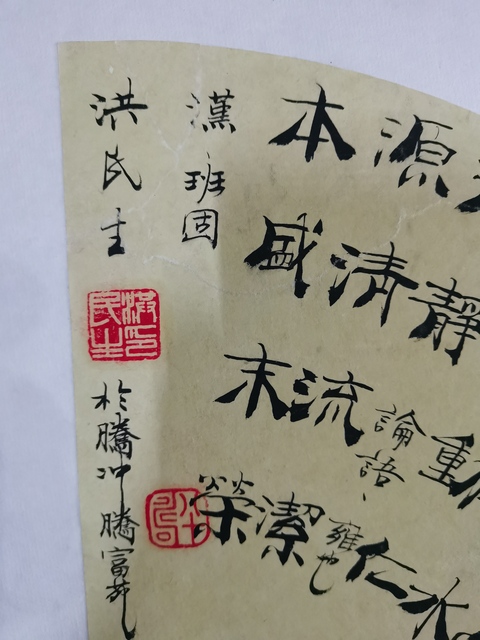 靜
論語、雍也
仁
水
源清流潔
本盛末榮
漢班固
洪民生
洪印民生
於騰冲騰富苑